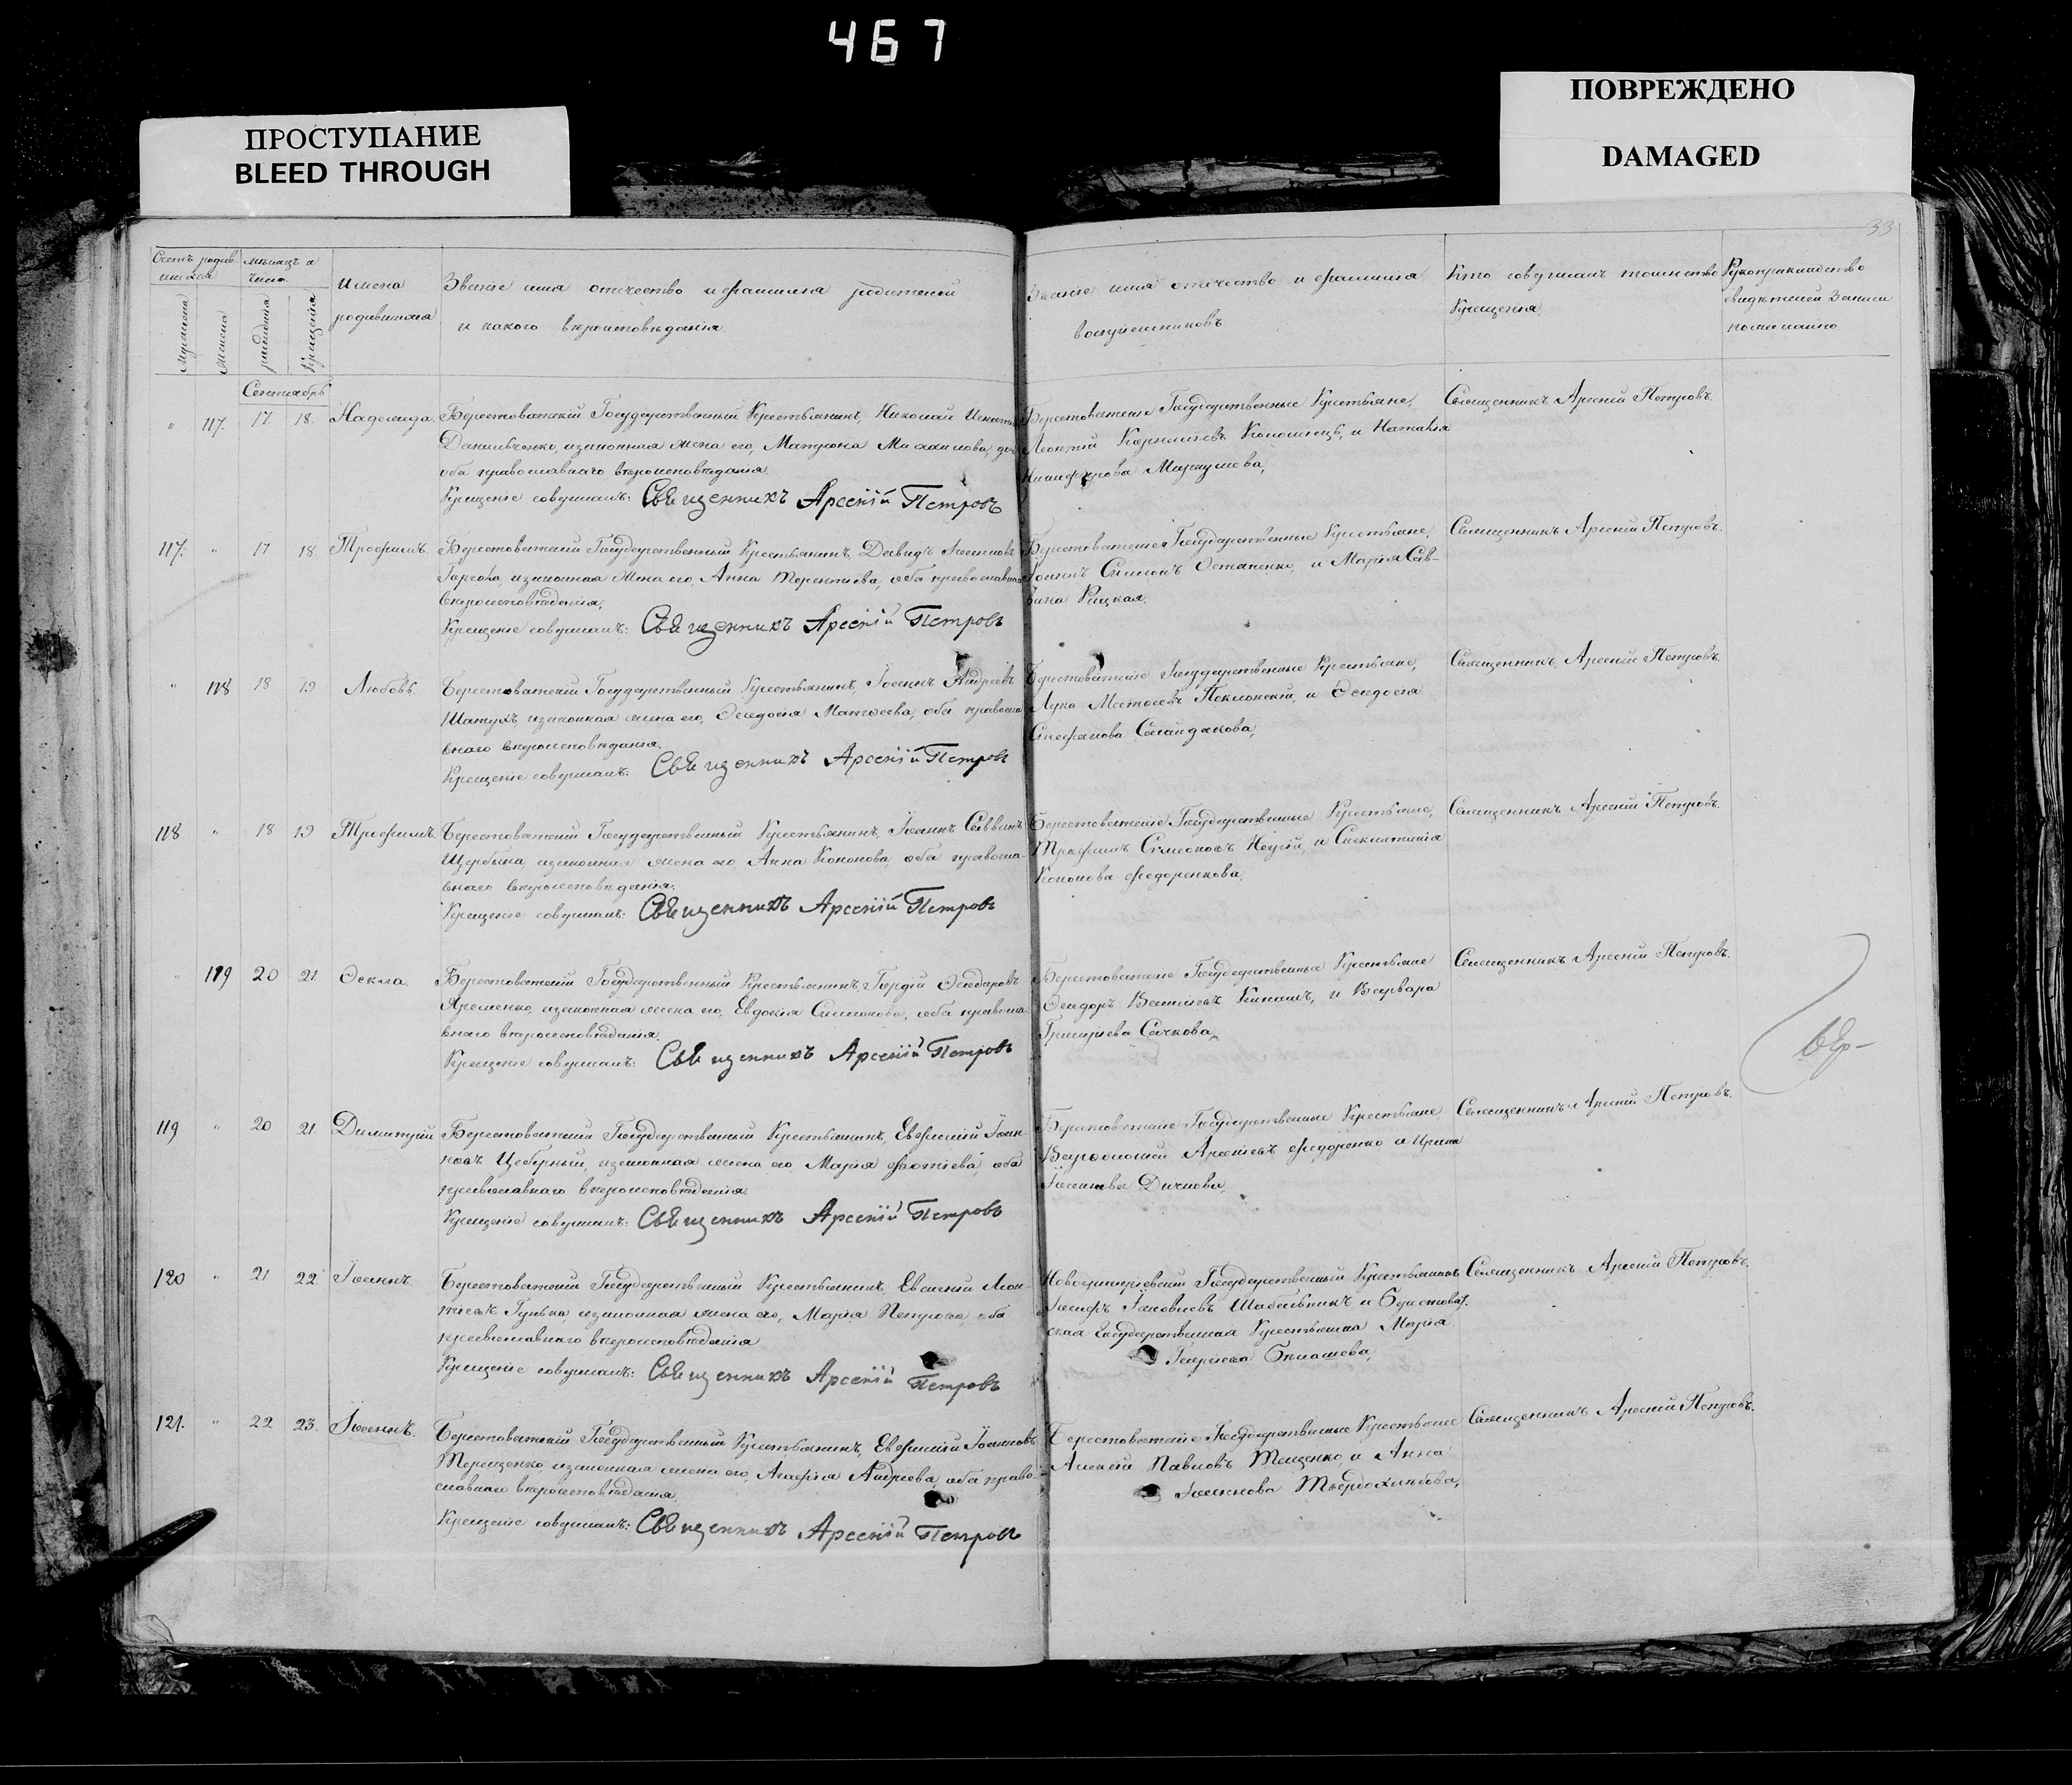 467
ПРОСТУПАНИЕ
BLEED THROUGH
ПОВРЕЖДЕНО
DAMAGED
33
Счетъ родив
шихся
мѣсяцъ и
число.
мужеска
женска
рожденія
крещенія
Имена
родившихся
Званіе имя отчество и фамилія родителей
и какого вѣроисповѣданія.
Званіе имя отчество и фамилія
воспріемниковъ
Кто совершалъ таинство
Крещенія
Рукоприкладство
свидѣтелей записи
по желанію
Сентябрь
" 117. 17. 18. Надежда.
Берестоватскій Государственный Крестьянинъ, Николай
Данильченко, изаконная жена его, Матрона Михаилова,
оба православнаго вѣроисповѣданія.
Крещеніе совершалъ: Священникъ Арсеній Петровъ
Берестоватскіе Государственные Крестьяне,
Леонтій Корниліевъ Коломіецъ, и Наталія
Никифорова Маркушева,
Священникъ Арсеній Петровъ.
117. " 17 18. Трофимъ.
Берестоватскій Государственный Крестьянинъ, Давидъ Іоанновъ
изаконная жена его, Анна Терентіева, оба православнаго
вѣроисповѣданія,
Крещеніе совершалъ: Священникъ Арсеній Петровъ
Берестоватскіе Государственные Крестьяне,
Іоаннъ Симеонъ Остапенко, и Марія Сав-
вина Рицкая.
Священникъ Арсеній Петровъ.
" 118 18 19 Любовь.
Берестоватскій Государственный Крестьянинъ, Іоаннъ Андреевъ
Шатухъ изаконная жена его, Ѳеодосія Матѳеева, оба правосла
внаго вѣроисповѣданія.
Крещеніе совершалъ: Священникъ Арсеній Петровъ
Берестоватскіе Государственные Крестьяне,
Лука Матѳеевъ Поклонскій, и Ѳеодосія
Стефанова Самайдакова,
Священникъ, Арсеній Петровъ.
118 " 18 19 Трофимъ.
Берестоватскій Государственный Крестьянинъ, Іоаннъ Саввинъ
Щербина, изаконная жена его, Анна Кононова, оба правосла-
внаго вѣроисповѣданія.
Крещеніе совершалъ: Священникъ Арсеній Петровъ
Берестоватскіе Государственные Крестьяне,
Трофимъ Симеоновъ и Секлитинія
Кононова Федоренкова,
Священникъ Арсеній Петровъ.
" 119 20 21. Ѳекла.
Берестоватскій Государственный Крестьянинъ, Гордій Ѳеодоровъ
Яременко, изаконная жена его, Евдокія Симеонова, оба правосла-
внаго вѣроисповѣданія.
Крещеніе совершалъ: Священникъ Арсеній Петровъ
Берестоватскіе Государственные Крестьяне
Ѳеодоръ Василіевъ Кинашъ, и Варвара
Григоріева Сачкова,
Священникъ Арсеній Петровъ.
вѣр-
119 " 20 21. Димитрій
Берестоватскій Государственный Крестьянинъ, Евфимій Іоан-
новъ Цеберный, изаконная жена его, Марія Фотіева, оба
православнаго вѣроисповѣданія.
Крещеніе совершалъ: Священникъ Арсеній Петровъ
Берестоватскіе Государственные Крестьяне
Варѳоломей Арсеніевъ Федоренко, и Ирина
Іоаннова Дичкова,
Священникъ Арсеній Петровъ.
120 " 21 22. Іоаннъ.
Берестоватскій Государственный Крестьянинъ, Евгеній Леон-
тіевъ Гунька, изаконная жена его, Марія Петрова оба
православнаго вѣроисповѣданія
Крещеніе совершалъ: Священникъ Арсеній Петровъ
Новогригоріевскій Государственный Крестьянинъ
Іосифъ Іаковлевъ Шабельникъ и Берестоват.
ская Государственная Крестьянка Марія
Георгіева Бѣлашева,
Священникъ Арсеній Петровъ.
121. " 22 23. Іоаннъ.
Берестоватскій Государственный Крестьянинъ, Евфимій Іоанновъ
Терещенко, изаконная жена его, Агафія Андреева, оба право-
славнаго вѣроисповѣданія.
Крещеніе совершалъ: Священникъ Арсеній Петровъ
Берестоватскіе Государственные Крестьяне
Алексій Павловъ Тещенко, и Анна
Іоаннова Твердохлибова,
Священникъ Арсеній Петровъ.